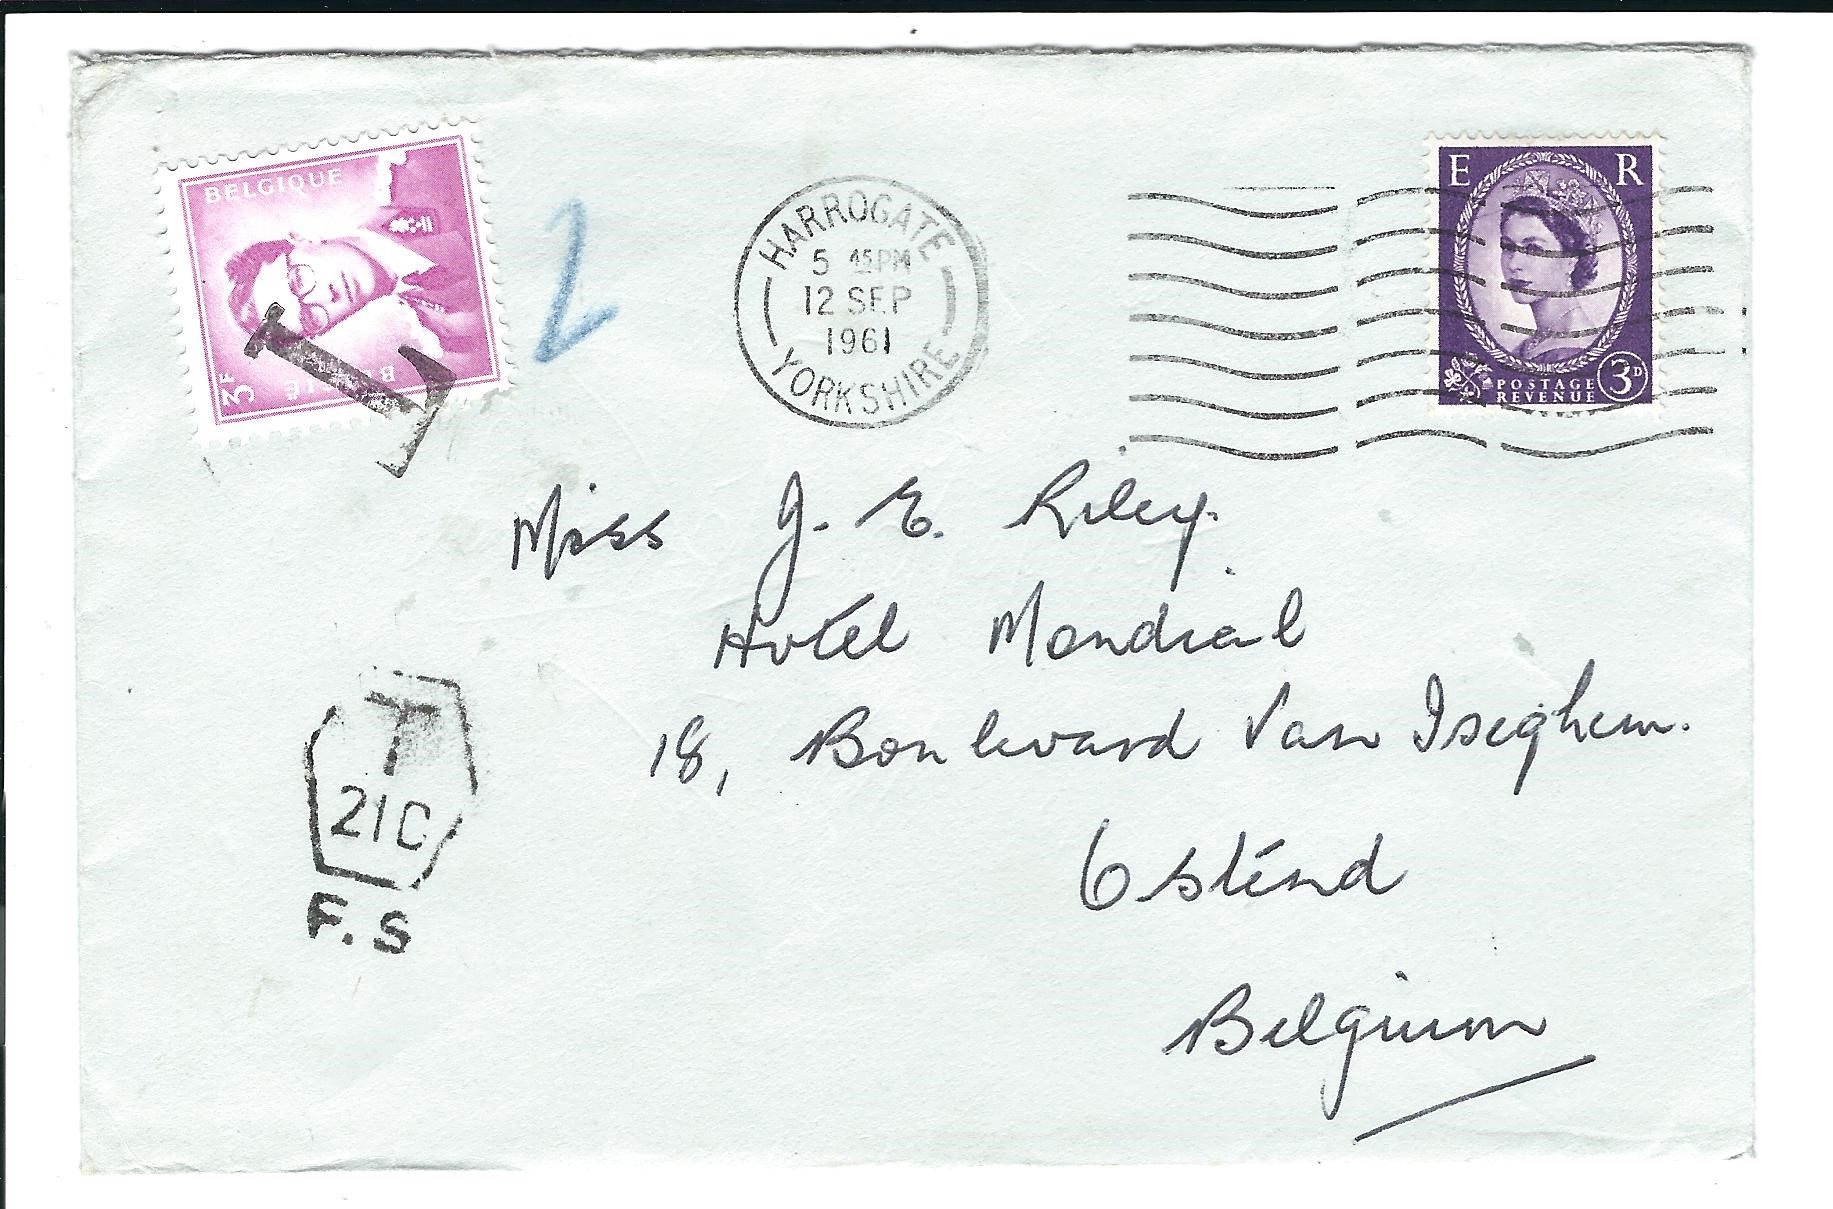 BELGIQUE
3F
BELGIË
T
2
HARROGATE
5 45PM
12 SEP
1961
YORKSHIRE
E R
POSTAGE
REVENUE
3D
Miss J. E. Riley.
Hotel Mondial
18, Boulevard Van Iseghem.
Ostend
Belgium
T
21C
F.S